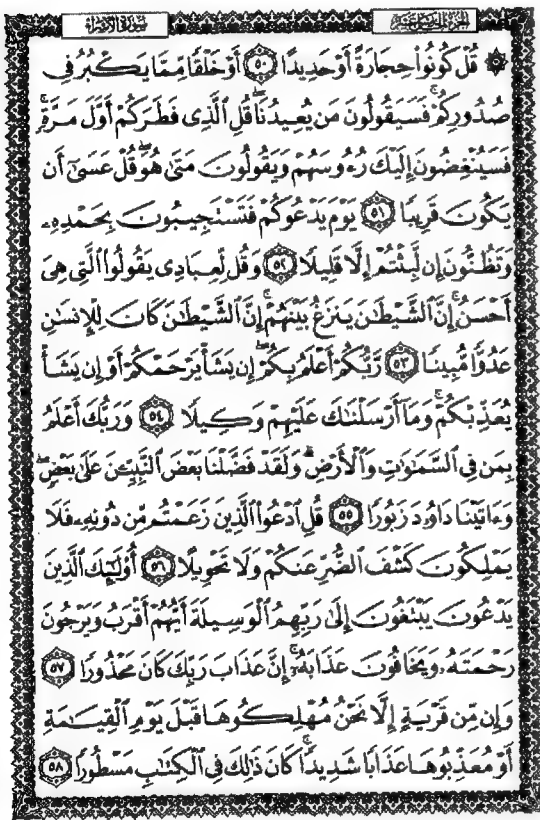 سورة الإسراء
الجزء الخامس عشر
۞ قُلْ كُونُوا۟ حِجَارَةً أَوْ حَدِيدًا ٥٠ أَوْ خَلْقًا مِّمَّا يَكْبُرُ فِى
صُدُورِكُمْ ۚ فَسَيَقُولُونَ مَن يُعِيدُنَا ۖ قُلِ ٱلَّذِى فَطَرَكُمْ أَوَّلَ مَرَّةٍ ۚ
فَسَيُنْغِضُونَ إِلَيْكَ رُءُوسَهُمْ وَيَقُولُونَ مَتَىٰ هُوَ ۖ قُلْ عَسَىٰٓ أَن
يَكُونَ قَرِيبًا ٥١ يَوْمَ يَدْعُوكُمْ فَتَسْتَجِيبُونَ بِحَمْدِهِۦ
وَتَظُنُّونَ إِن لَّبِثْتُمْ إِلَّا قَلِيلًا ٥٢ وَقُل لِّعِبَادِى يَقُولُوا۟ ٱلَّتِى هِىَ
أَحْسَنُ ۚ إِنَّ ٱلشَّيْطَٰنَ يَنزَغُ بَيْنَهُمْ ۚ إِنَّ ٱلشَّيْطَٰنَ كَانَ لِلْإِنسَٰنِ
عَدُوًّا مُّبِينًا ٥٣ رَّبُّكُمْ أَعْلَمُ بِكُمْ ۖ إِن يَشَأْ يَرْحَمْكُمْ أَوْ إِن يَشَأْ
يُعَذِّبْكُمْ ۚ وَمَآ أَرْسَلْنَٰكَ عَلَيْهِمْ وَكِيلًا ٥٤ وَرَبُّكَ أَعْلَمُ
بِمَن فِى ٱلسَّمَٰوَٰتِ وَٱلْأَرْضِ ۗ وَلَقَدْ فَضَّلْنَا بَعْضَ ٱلنَّبِيِّۦنَ عَلَىٰ بَعْضٍ ۖ
وَءَاتَيْنَا دَاوُۥدَ زَبُورًا ٥٥ قُلِ ٱدْعُوا۟ ٱلَّذِينَ زَعَمْتُم مِّن دُونِهِۦ فَلَا
يَمْلِكُونَ كَشْفَ ٱلضُّرِّ عَنكُمْ وَلَا تَحْوِيلًا ٥٦ أُو۟لَٰٓئِكَ ٱلَّذِينَ
يَدْعُونَ يَبْتَغُونَ إِلَىٰ رَبِّهِمُ ٱلْوَسِيلَةَ أَيُّهُمْ أَقْرَبُ وَيَرْجُونَ
رَحْمَتَهُۥ وَيَخَافُونَ عَذَابَهُۥٓ ۚ إِنَّ عَذَابَ رَبِّكَ كَانَ مَحْذُورًا ٥٧
وَإِن مِّن قَرْيَةٍ إِلَّا نَحْنُ مُهْلِكُوهَا قَبْلَ يَوْمِ ٱلْقِيَٰمَةِ
أَوْ مُعَذِّبُوهَا عَذَابًا شَدِيدًا ۚ كَانَ ذَٰلِكَ فِى ٱلْكِتَٰبِ مَسْطُورًا ٥٨